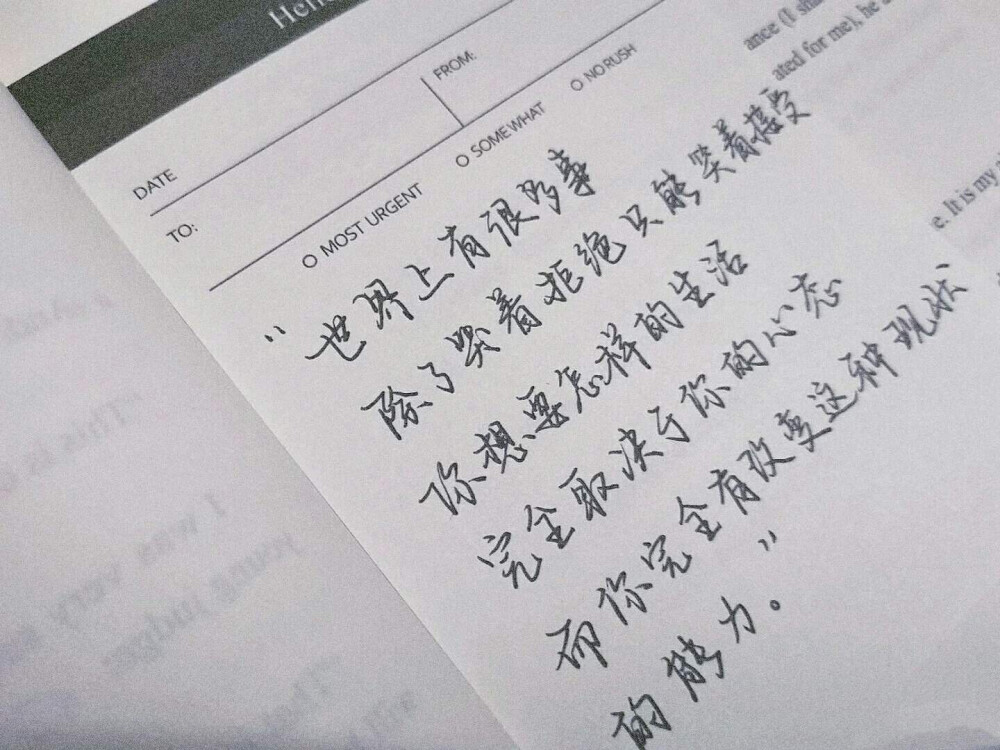 DATE
FROM:
TO:
O MOST URGENT
O SOMEWHAT
O NO RUSH
“世界上有很多事
除了哭着拒绝只能笑着接受
你想要怎样的生活
完全取决于你的心态
而你完全有改变这种现状
的能力。”
ance (I sha
ated for me), he a
e. It is my
"This is
I was very
young judge